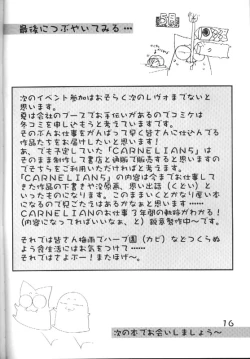 最後につぶやいてみる…
次のイベント参加はおそらく次のレヴォまでないと
思います。
夏は会社のブースでお手伝いがあるのでコミケは
冬コミを申し込もうと考えています。
そのぶんお仕事をがんばって早く皆さんに仕込んでる
作品たちをお届けしたいと思います!
あ、でも予定していた「CARNELIAN5」は
そのまま制作して書店と通販で販売すると思いますの
でそちらをご利用いただければと考えます。
「CARNELIAN5」の内容は今までお仕事して
きた作品の下書きや没原画、思い出話(くどい)と
いったものになります。このままいくとかなり厚い本
になるので見ごたえはあるかなぁと思います……
CARNELIANのお仕事3年間の軌跡がわかる!
(内容になってればいいなぁ、と)鋭意製作中~です。
それでは皆さん梅雨でハーブ園(カビ)などつくらぬ
よう食生活にはお気をつけて……
それではさよぶー!またほげ~。
16
次の本でお会いしましょう~